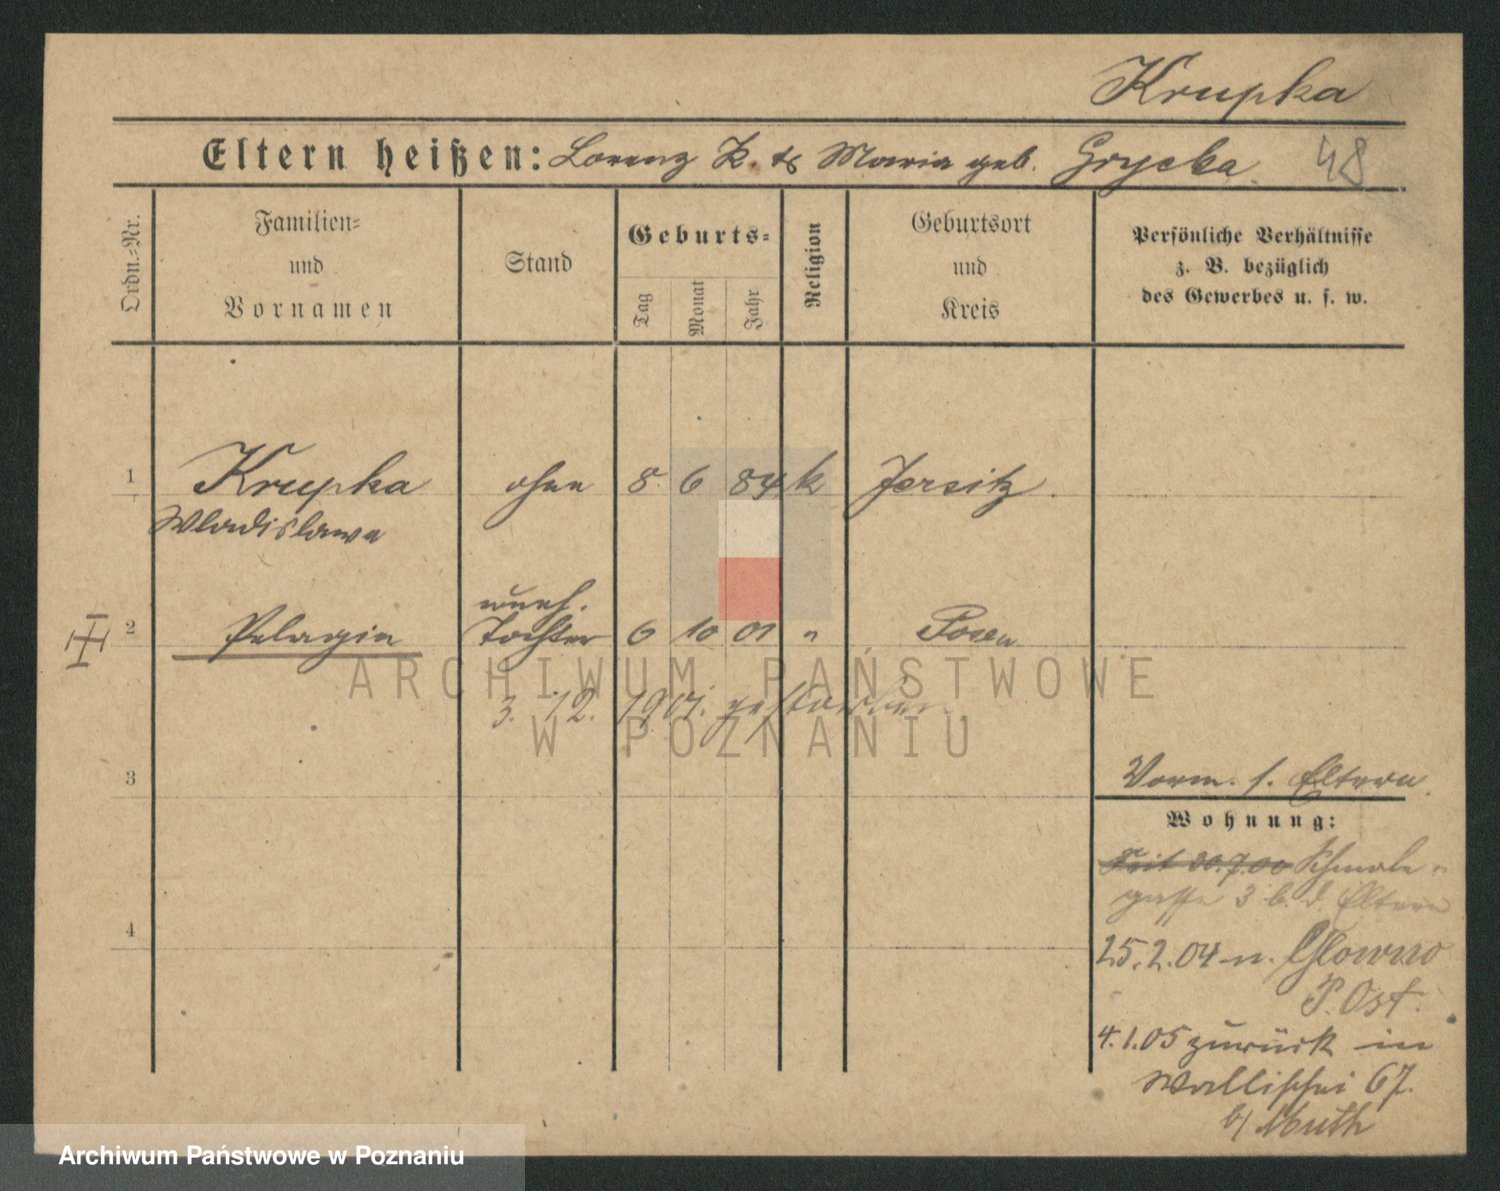 Krupka
Eltern heißen: Lorenz K. & Maria geb. Grycka 48
Ordn.-Nr.
Familien- und Vornamen
Stand
Geburts-
Tag
Monat
Jahr
Religion
Geburtsort und Kreis
Persönliche Verhältnisse
z. B. bezüglich
des Gewerbes u. s. w.
1 Krupka ohne 8. 6 84 k Jersitz.
Wladislawa
uneh.
2 Pelagia Tochter 6 10 01 " Posen
3. 12. 1901. gestorben.
3
Vorm. s. Eltern.
Wohnung:
Seit 20.7.00 Schmale-
gasse 3 b. d. Eltern
4
25.2.04 n. Glowno
P. Ost.
4.1.05 zurück in
Wallischei 67.
b/ Muth
ARCHIWUM PAŃSTWOWE
W POZNANIU
Archiwum Państwowe w Poznaniu